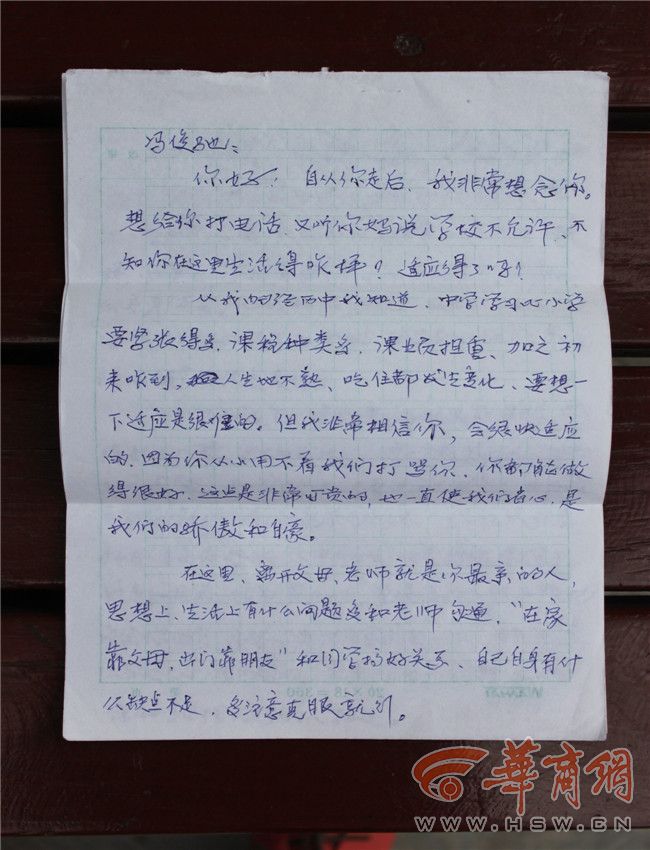 冯俊驰:
你好! 自从你走后、我非常想念你。
想给你打电话、又听你妈说学校不允许、不
知你在这里生活得咋样? 适应得了吗?
从我的经历中我知道、中学学习比小学
要紧张得多、课程种类多、课业负担重、加之初
来咋到、人生地不熟、吃住都发生变化、要想一
下适应是很难的。但我非常相信你，会很快适应
的、因为你从小用不着我们打骂你、你都能做
得很好、这点是非常可贵的，也一直使我们省心、是
我们的骄傲和自豪。
在这里、离开父母、老师就是你最亲的人，
思想上、生活上有什么问题多和老师沟通，“在家
靠父母，出门靠朋友”和同学搞好关系、自己自身有什
么缺点不足，多注意克服就行。
华商网
WWW.HSW.CN